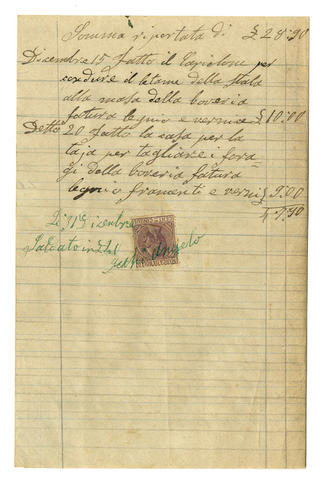 Somma riportata di £ 28:90
Dicembre 15 fatto il cariolone per
condure il letame della stala
alla masa della boveria
fatura legnio e vernice £ 10:00
Detto 20 fatto la casa per la
taja per tagliare i fora-
gi della boveria fatura
legnio framenti e verni £ 9:00
47,90
Di 31 Dicembre
Saldato in
Angelo